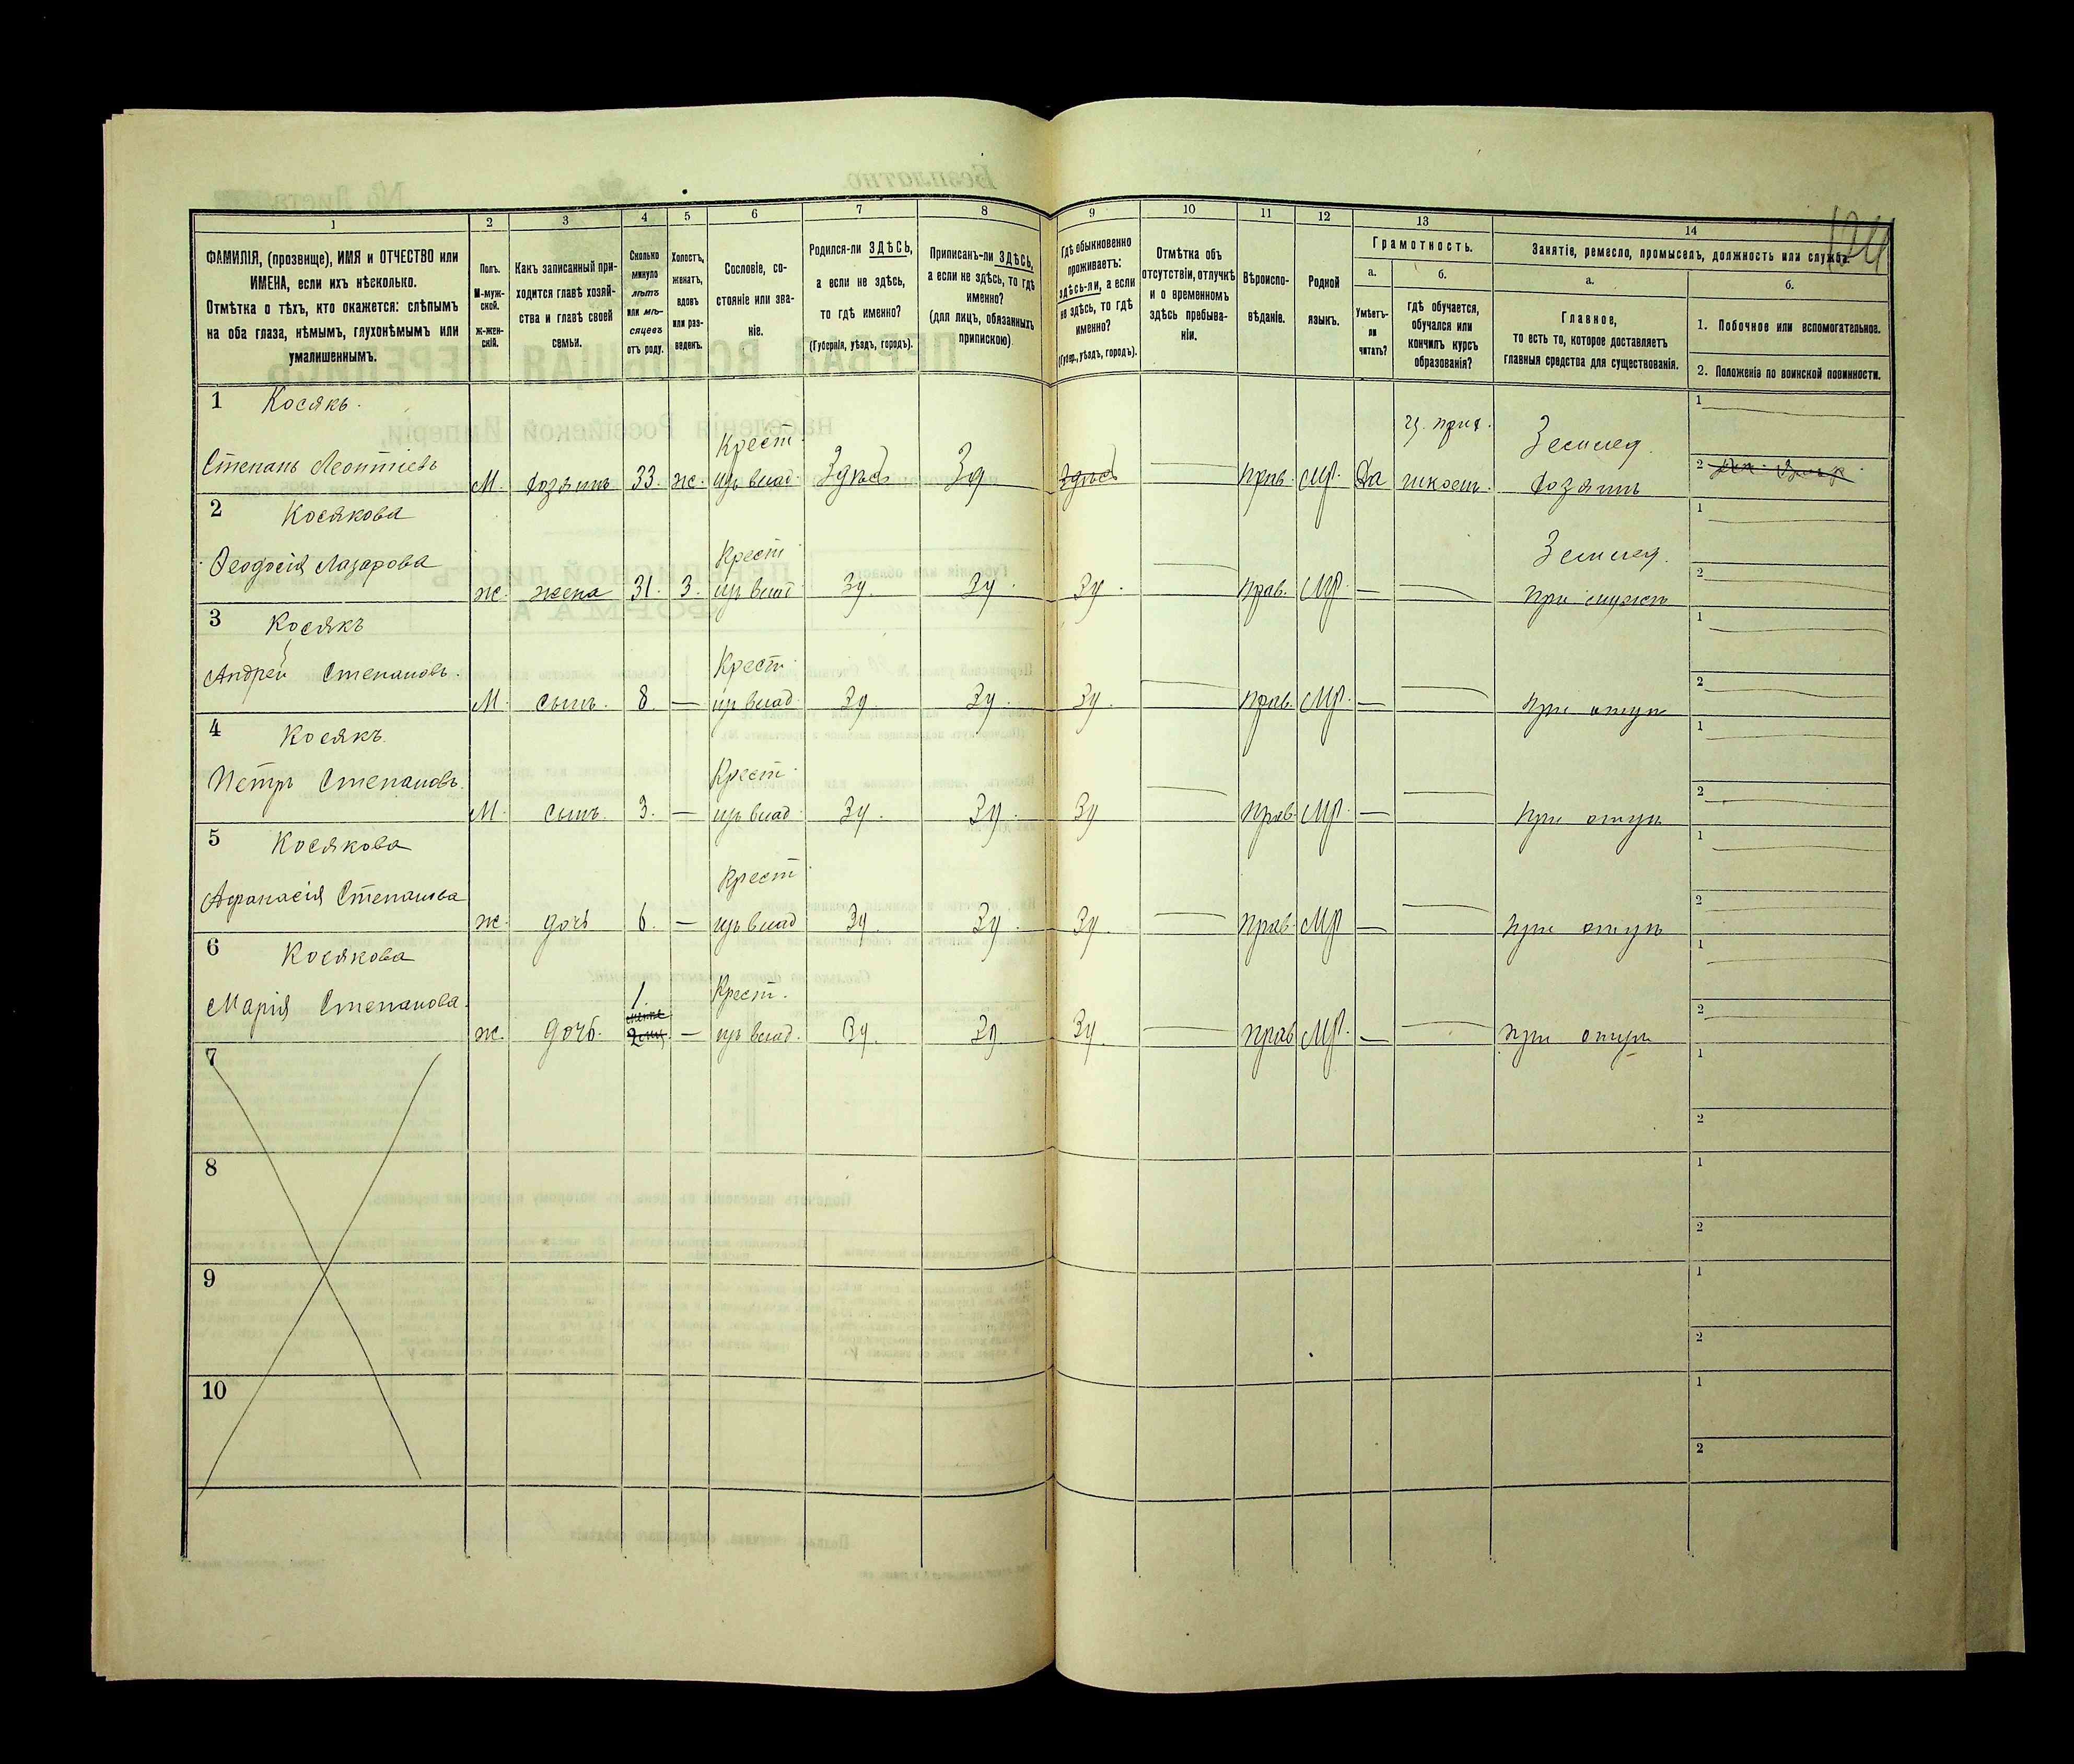 124
1 2 3 4 5 6 7 8 9 10 11 12 13 14
ФАМИЛІЯ, (прозвище), ИМЯ и ОТЧЕСТВО или
ИМЕНА, если ихъ нѣсколько.
Отмѣтка о тѣхъ, кто окажется: слѣпымъ
на оба глаза, нѣмымъ, глухонѣмымъ или
умалишеннымъ.
Полъ.
М-муж-
ской.
Ж-жен-
скій.
Какъ записанный при-
ходится главѣ хозяй-
ства и главѣ своей
семьи.
Сколько
минуло
лѣтъ
или мѣ-
сяцевъ
отъ роду.
Холостъ,
женатъ,
вдовъ
или раз-
веденъ.
Сословіе, со-
стояніе или зва-
ніе.
Родился-ли ЗДѢСЬ,
а если не здѣсь,
то гдѣ именно?
(Губернія, уѣздъ, городъ).
Приписанъ-ли ЗДѢСЬ,
а если не здѣсь, то гдѣ
именно?
(для лицъ, обязанныхъ
припискою)
Гдѣ обыкновенно
проживаетъ:
здѣсь-ли, а если
не здѣсь, то гдѣ
именно?
(Губер., уѣздъ, городъ).
Отмѣтка объ
отсутствіи, отлучкѣ
и о временномъ
здѣсь пребыва-
ніи.
Вѣроиспо-
вѣданіе.
Родной
языкъ.
Грамотность.
а.
Умѣетъ-
ли
читать?
б.
гдѣ обучается,
обучался или
кончилъ курсъ
образованія?
Занятіе, ремесло, промыселъ, должность или служба.
а.
Главное,
то есть то, которое доставляетъ
главныя средства для существованія.
б.
1. Побочное или вспомогательное.
2. Положеніе по воинской повинности.
1 Косякъ.
Крест. Землед. 1
Степанъ Леонтіевъ М. хозяинъ 33. ж. изъ влад. Здѣсь Зд Здѣсь Прав. Мр. Да школѣ. хозяинъ 2
2 Косякова
Крест. Землед. 1
Ѳеодосія Лазарова ж. жена 31. З. изъ влад. Зд. Зд. Зд. Прав. Мр. — — 2
3 Косякъ
Крест. 1
Андрей Степановъ. М. сынъ. 8. — изъ влад. Зд. Зд. Зд. Прав. Мр. — — При отцѣ 2
4 Косякъ.
Крест. 1
Петръ Степановъ. М. сынъ. 3. — изъ влад. Зд. Зд. Зд Прав. Мр. — — При отцѣ 2
5 Косякова
Крест. 1
Афанасія Степанова ж. дочь 6. — изъ влад Зд. Зд. Зд. Прав. Мр — — При отцѣ 2
6 Косякова
1. Крест. 1
Марія Степанова. ж. дочь. — изъ влад. Зд. Зд Зд. Прав Мр. — — При отцѣ 2
7 1
2
8 1
2
9 1
2
10 1
2